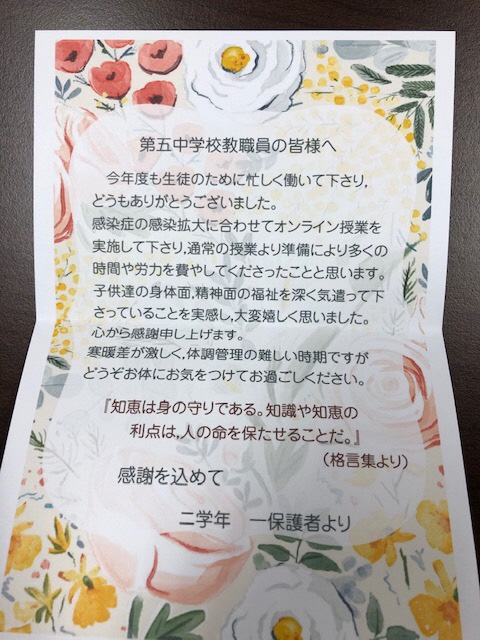 第五中学校教職員の皆様へ
今年度も生徒のために忙しく働いて下さり,
どうもありがとうございました。
感染症の感染拡大に合わせてオンライン授業を
実施して下さり,通常の授業より準備により多くの
時間や労力を費やしてくださったことと思います。
子供達の身体面,精神面の福祉を深く気遣って下
さっていることを実感し,大変嬉しく思いました。
心から感謝申し上げます。
寒暖差が激しく,体調管理の難しい時期ですが
どうぞお体にお気をつけてお過ごしください。
『知恵は身の守りである。知識や知恵の
利点は,人の命を保たせることだ。』
(格言集より)
感謝を込めて
二学年 一保護者より